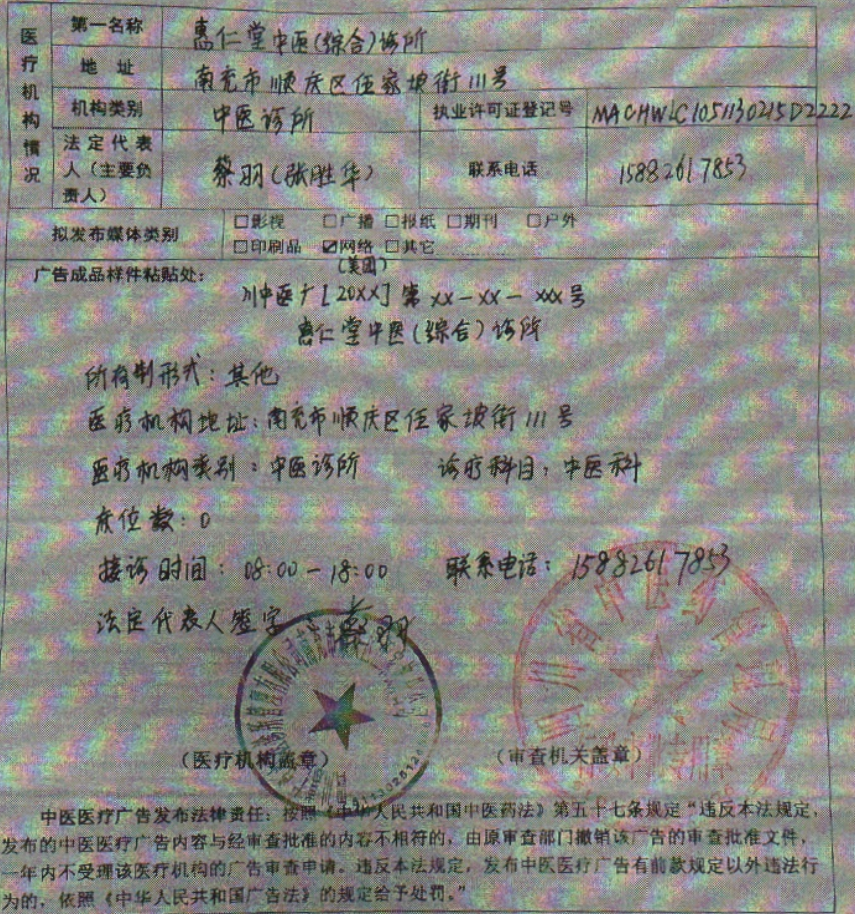 医疗机构情况
第一名称 惠仁堂中医(综合)诊所
地 址 南充市顺庆区伍家坡街111号
机构类别 中医诊所 执业许可证登记号 MACHWLC1051130215D2222
法定代表人（主要负责人） 蔡羽(张胜华) 联系电话 15882617853
拟发布媒体类别 □影视 □广播 □报纸 □期刊 □户外
□印刷品 ☑网络 □其它
(美团)
广告成品样件粘贴处：
川中医广[20XX]第XX-XX-XXX号
惠仁堂中医(综合)诊所
所有制形式：其他
医疗机构地址：南充市顺庆区伍家坡街111号
医疗机构类别：中医诊所 诊疗科目：中医科
床位数：0
接诊时间：08:00-18:00 联系电话：15882617853
法定代表人签字 蔡羽
四川省中医药管理局
（医疗机构盖章） （审查机关盖章）
中医医疗广告发布法律责任：按照《中华人民共和国中医药法》第五十七条规定“违反本法规定，
发布的中医医疗广告内容与经审查批准的内容不相符的，由原审查部门撤销该广告的审查批准文件，
一年内不受理该医疗机构的广告审查申请。违反本法规定，发布中医医疗广告有前款规定以外违法行
为的，依照《中华人民共和国广告法》的规定给予处罚。”